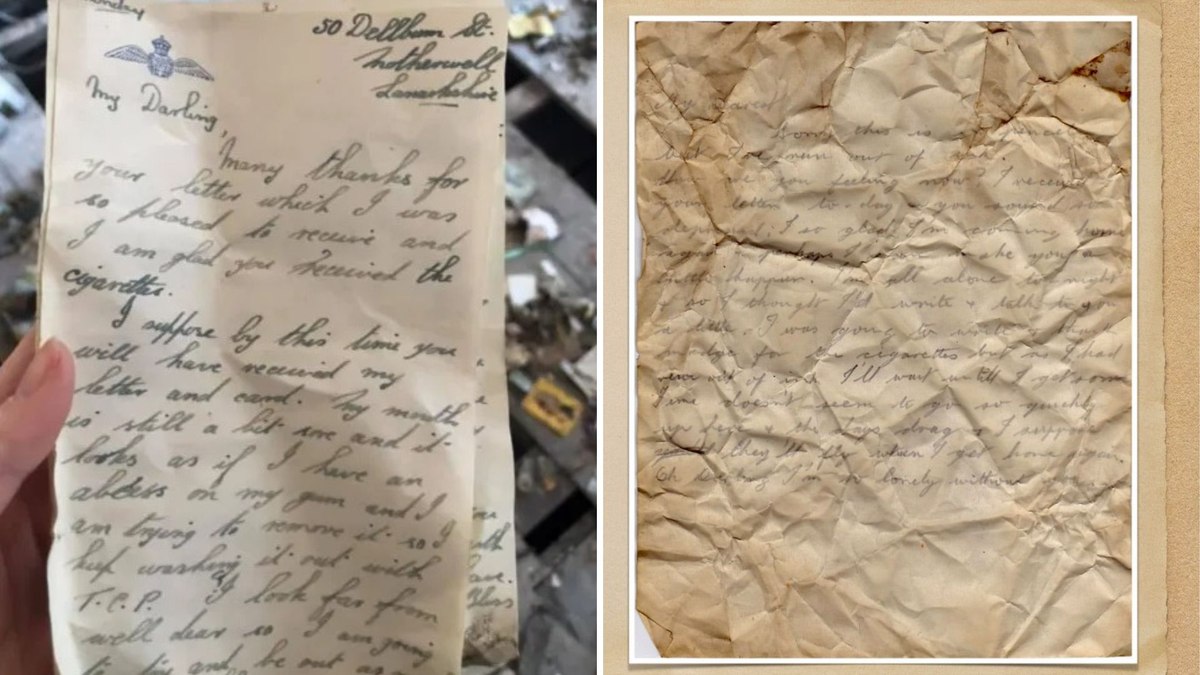 Monday
50 Dellburn St.
Motherwell
Lanarkshire
My Darling,
Many thanks for
your letter which I was
so pleased to receive and
I am glad you received the
cigarettes.
I suppose by this time you
will have received my
letter and card. My mouth
is still a bit sore and it
looks as if I have an
abcess on my gum and I
am trying to remove it so I
keep washing it out with
T.C.P. I look far from
well dear so I am going
to try and be out as
My Dearest
Sorry this is in pencil
but I've run out of ink.
How are you feeling now? I received
your letter to-day & you sound so
depressed; I so glad I'm coming home
again perhaps I can make you a
little happier. I'm all alone tonight
& so I thought I'd write & talk to you
a little. I was going to write & thank
for the cigarettes but as I had
run out of ink I'll wait until I get some
Time doesn't seem to go so quickly
up here & the days drag, I suppose
they'll fly when I get home again.
Oh darling I'm so lonely without you